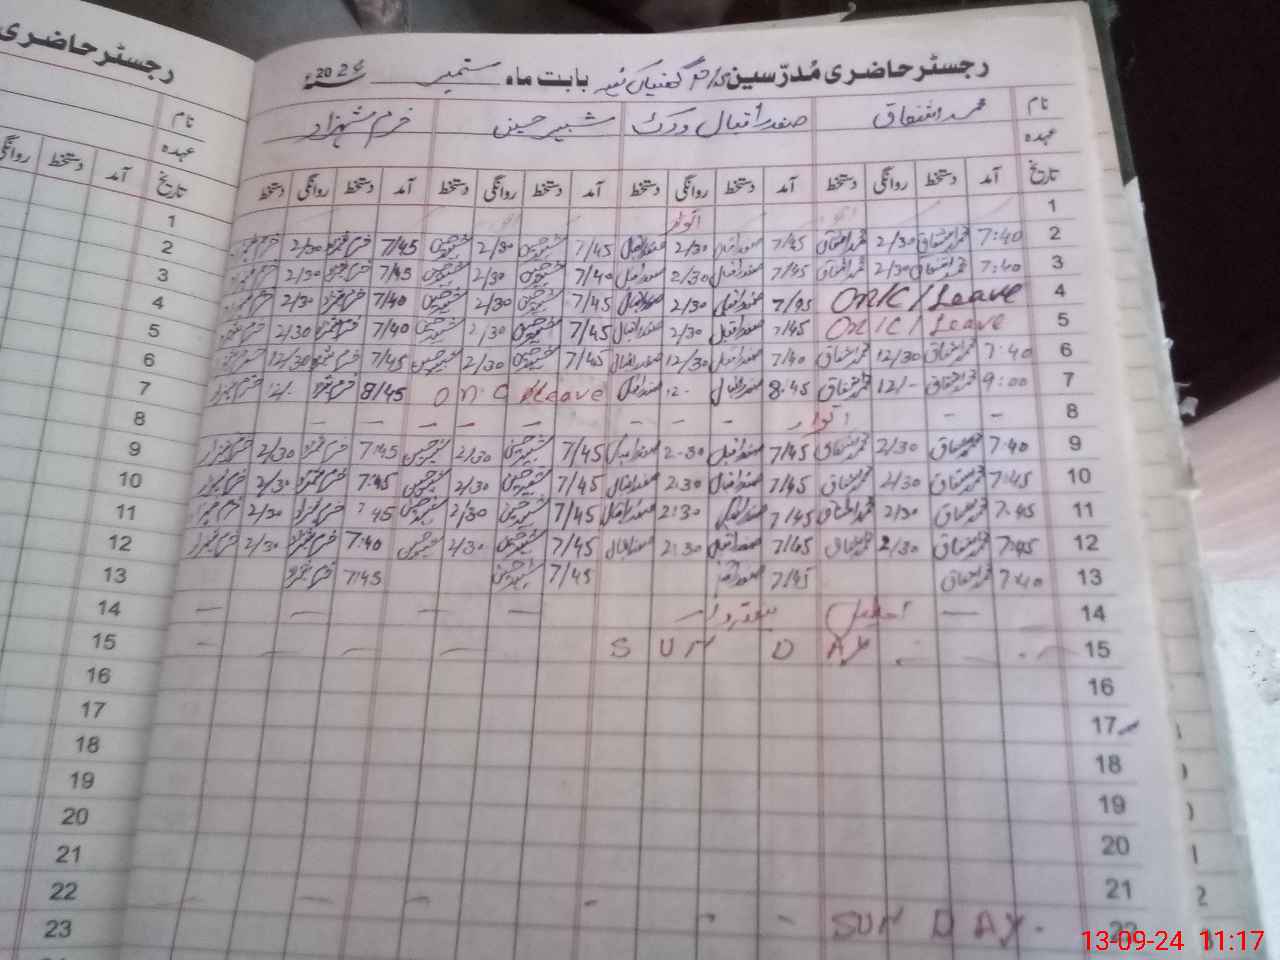 رجسٹر حاضری
نام
عہدہ
تاریخ آمد دستخط روانگی
رجسٹر حاضری مُدرّسین بابت ماہ ستمبر 2024
نام محمد اشفاق صفدر اقبال شبیر حسین خرم شہزاد
عہدہ
تاریخ آمد دستخط روانگی دستخط آمد دستخط روانگی دستخط آمد دستخط روانگی دستخط آمد دستخط روانگی دستخط
1 اتوار
2 7:40 محمد اشفاق 2/30 محمد اشفاق 7/45 صفدر اقبال 2/30 صفدر اقبال 7/45 شبیر حسین 2/30 شبیر حسین 7/45 خرم شہزاد 2/30 خرم شہزاد
3 7:40 محمد اشفاق 2/30 محمد اشفاق 7/45 صفدر اقبال 2/30 صفدر اقبال 7/40 شبیر حسین 2/30 شبیر حسین 7/45 خرم شہزاد 2/30 خرم شہزاد
4 Leave 7/45 صفدر اقبال 2/30 صفدر اقبال 7/45 شبیر حسین 2/30 شبیر حسین 7/40 خرم شہزاد 2/30 خرم شہزاد
5 Leave 7/45 صفدر اقبال 2/30 صفدر اقبال 7/45 شبیر حسین 2/30 شبیر حسین 7/40 خرم شہزاد 2/30 خرم شہزاد
6 7:40 محمد اشفاق 12/30 محمد اشفاق 7/40 صفدر اقبال 12/30 صفدر اقبال 7/45 شبیر حسین 2/30 شبیر حسین 7/45 خرم شہزاد 12/30 خرم شہزاد
7 9:00 محمد اشفاق 12/- محمد اشفاق 8:45 صفدر اقبال صفدر اقبال Leave 8/45 خرم شہزاد خرم شہزاد
8 اتوار
9 7:40 محمد اشفاق 2/30 محمد اشفاق 7/45 صفدر اقبال 2:30 صفدر اقبال 7/45 شبیر حسین 2/30 شبیر حسین 7:45 خرم شہزاد 2/30 خرم شہزاد
10 7:45 محمد اشفاق 2/30 محمد اشفاق 7/45 صفدر اقبال 2:30 صفدر اقبال 7/45 شبیر حسین 2/30 شبیر حسین 7:45 خرم شہزاد 2/30 خرم شہزاد
11 7:45 محمد اشفاق 2/30 محمد اشفاق 7/45 صفدر اقبال 2:30 صفدر اقبال 7/45 شبیر حسین 2/30 شبیر حسین 7:45 خرم شہزاد 2/30 خرم شہزاد
12 7:45 محمد اشفاق 2/30 محمد اشفاق 7/45 صفدر اقبال 2:30 صفدر اقبال 7/45 شبیر حسین 2/30 شبیر حسین 7:40 خرم شہزاد 2/30 خرم شہزاد
13 7:40 محمد اشفاق 7/45 صفدر اقبال 7/45 شبیر حسین 7:45 خرم شہزاد
14
15 SUNDAY
16
17
18
19
20
21
22 SUNDAY
1
2
3
4
5
6
7
8
9
10
11
12
13
14
15
16
17
18
19
20
21
22
23
13-09-24 11:17